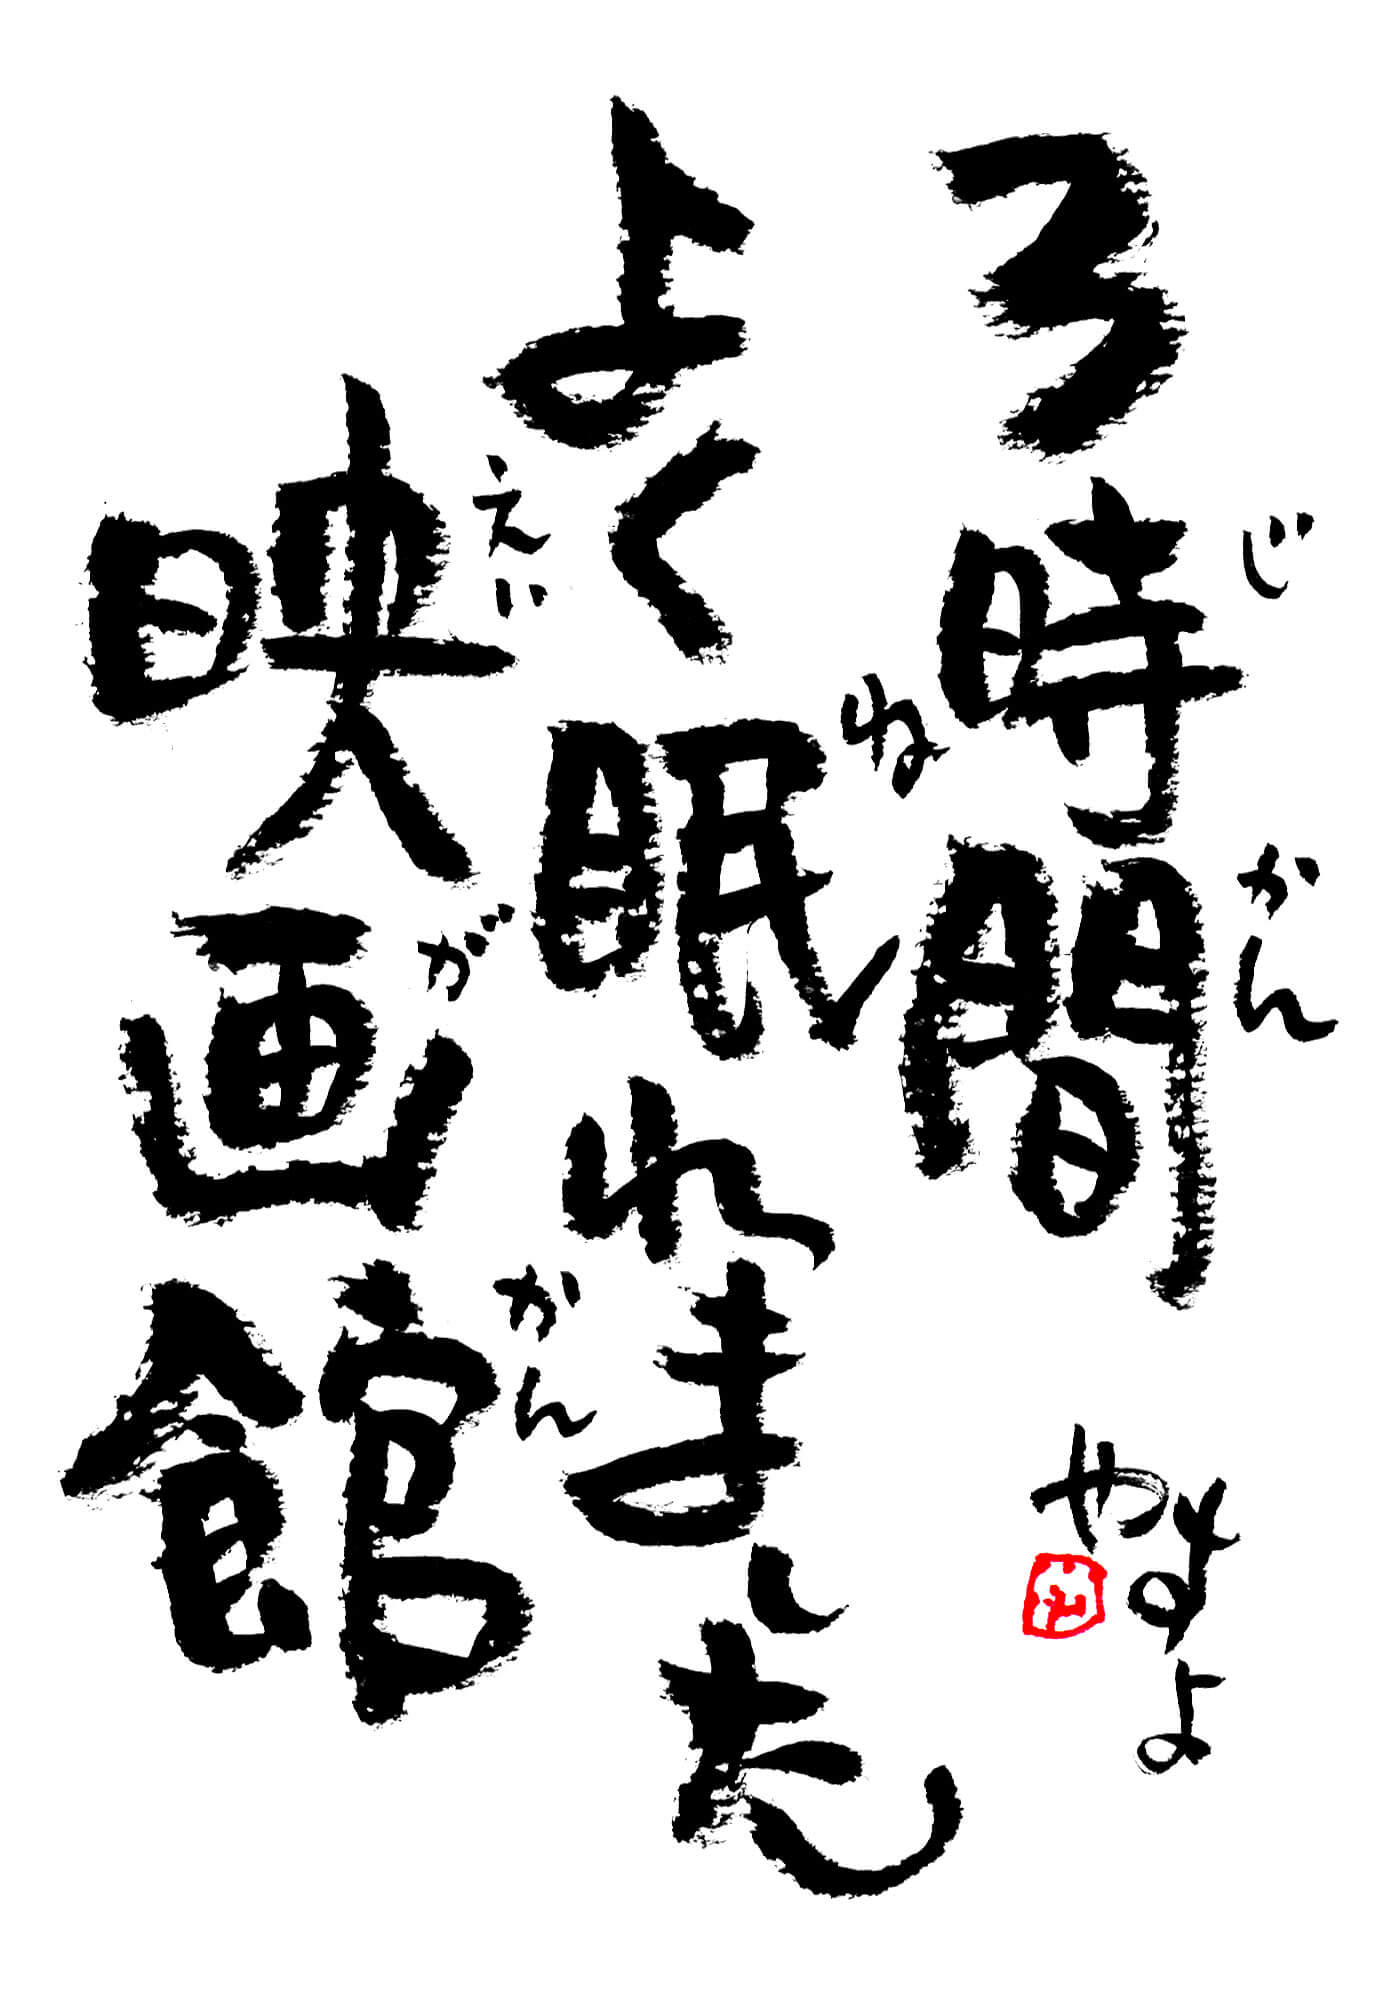 3時間
じかん
よく眠れました
ね
映画館
えいがかん
やすよ